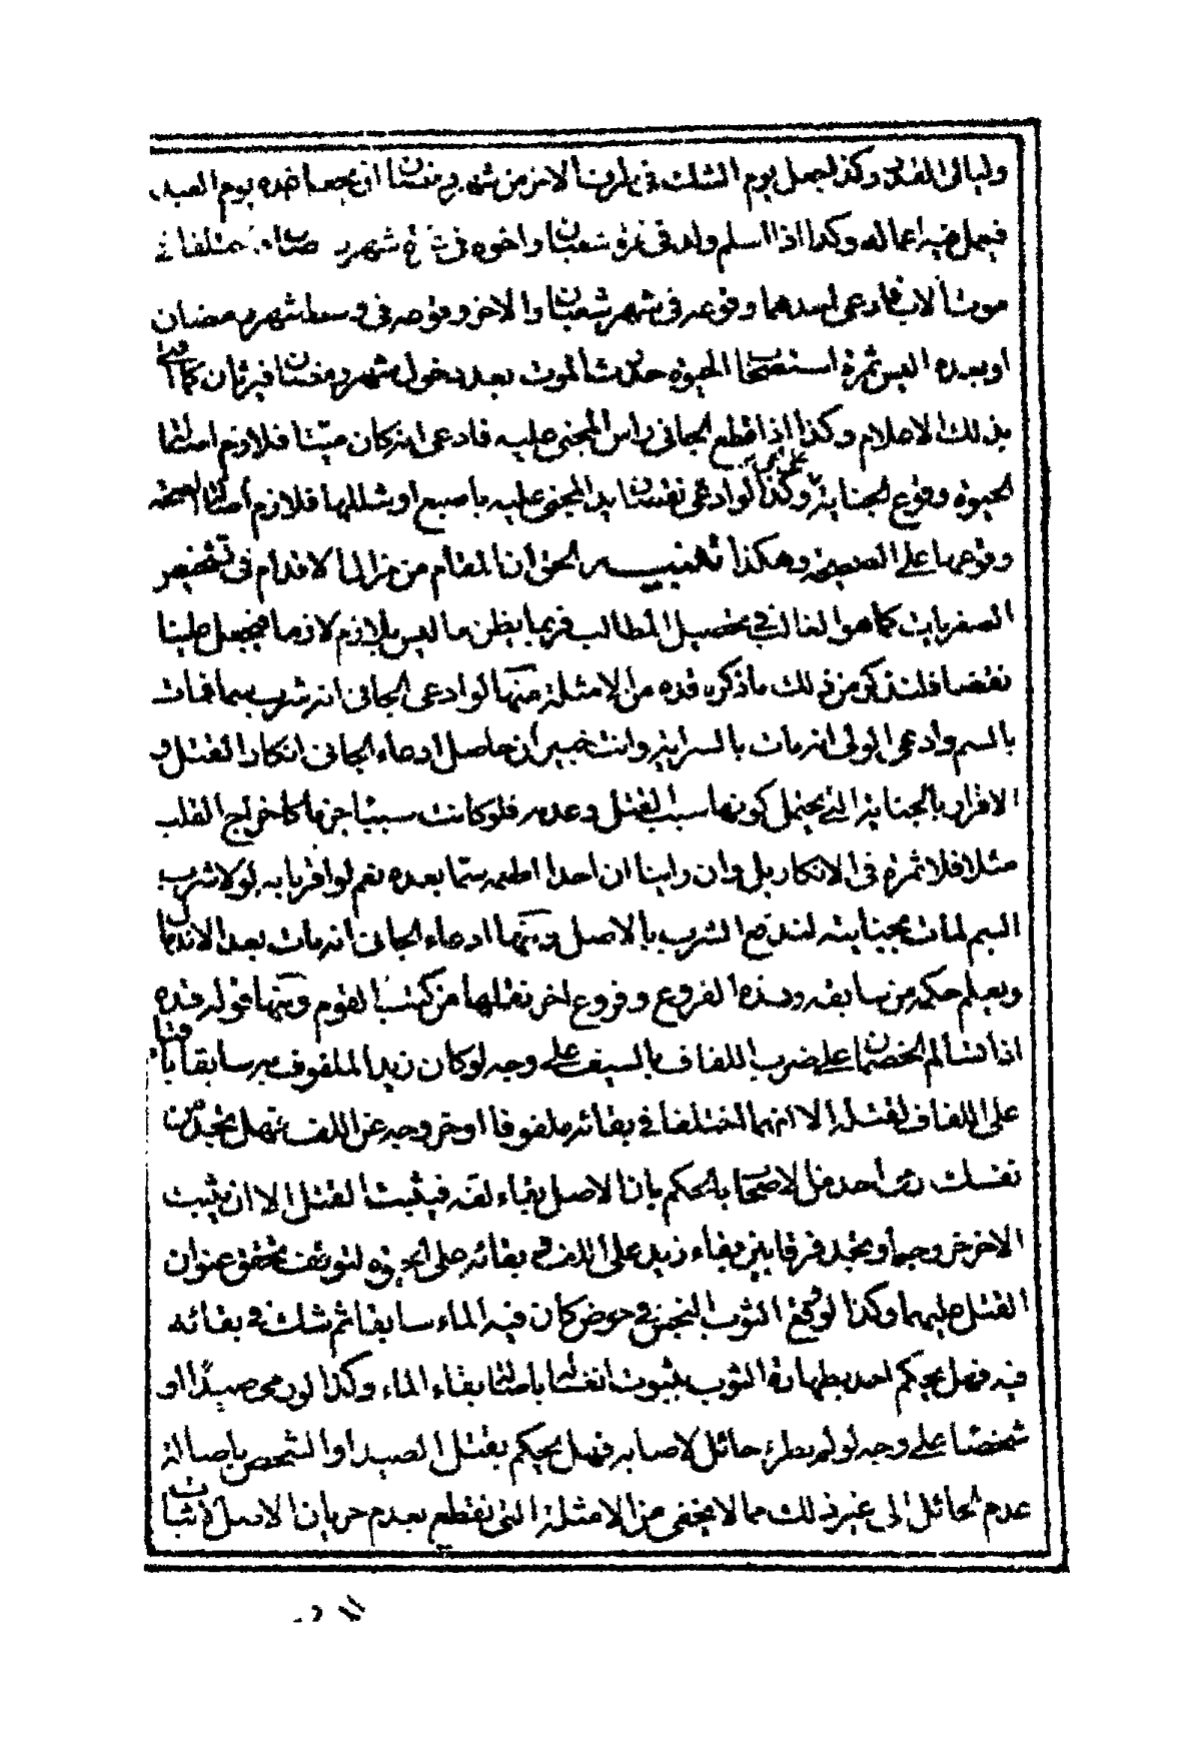 وليالى القدر وكذا يجعل يوم الشك فى طرف الاخر من شهر رمضان اذ يجعل ضده يوم العيد
فيعمل فيه اعماله وكذا اذا اسلم ولد فى غرة شعبان واخوه فى شهر رمضان
موت الاب فادعى احدهما وقوعه فى شهر شعبان والاخر وقوعه فى وسط شهر رمضان
او بعده اليس ثمرة استصحاب الحيوة حدوث الموت بعد دخول شهر رمضان فيرثان كما افتى
بذلك الاعلام وكذا اذا قطع الجانى راس المجنى عليه فادعى انه كان ميتا فلازم اصالة
الحيوة وقوع الجناية على الحى وكذا لو ادعى نقصان يد المجنى عليه باصبع او شللها فلازم اصالة الصحة
وقوعها على الصحيحة وهكذا تنبيه الحق ان المقام من مزال الاقدام فى تشخيص
الصغريات كما هو الغالب فى تحصيل المطالب فربما يظن ما ليس بلازم لازما فيجعل علينا
نقضا فلنذكر من ذلك ما ذكره قده من الامثلة منها لو ادعى الجانى انه شرب سما فمات
بالسم وادعى الولى انه مات بالسراية وانت خبير ان حاصل ادعاء الجانى انكار القتل و
الاقرار بالجناية التى يحتمل كونها سبب القتل وعدمه فلو كانت سببيا جزما كاخراج القلب
مثلا فلا ثمرة فى الانكار بل وان راينا ان احدا اطعمه سما بعده نعم لو اقر بانه لولا شرب
السم لمات بجنايته لندفع الشرب بالاصل ومنها ادعاء الجانى انه مات بعد الاندمال
ويعلم حكمه من سابقه وهذه الفروع وفروع اخر نقلها من كتب القوم ومنها قوله قده
اذا تسالم الخصمان على ضرب اللفاف بالسيف على وجه لو كان زيد الملفوف به سابقا باقيا
على اللفاف لقتله الا انهما اختلفا فى بقائه ملفوفا او خروجه عن اللف فهل تجد من
نفسك رمى احد من الاصحاب بالحكم بان الاصل بقاء لفه فيثبت القتل الا ان يثبت
الاخر خروجه او تجد فرقا بين بقاء زيد على اللف وبقائه على الحيوة لتوقف تحقق عنوان
القتل عليهما وكذا لو وقع الثوب النجس فى حوض كان فيه الماء سابقا ثم شك فى بقائه
فيه فهل يحكم احد بطهارة الثوب بثبوت انغساله باصالة بقاء الماء وكذا لو رمى صيدا او
شخصا على وجه لو لم يطرء حائل لاصابه فهل يحكم بقتل الصيد او الشخص باصالة
عدم الحائل الى غير ذلك مما لا يخفى من الامثلة التى نقطع بعدم جريان الاصل لاثبات